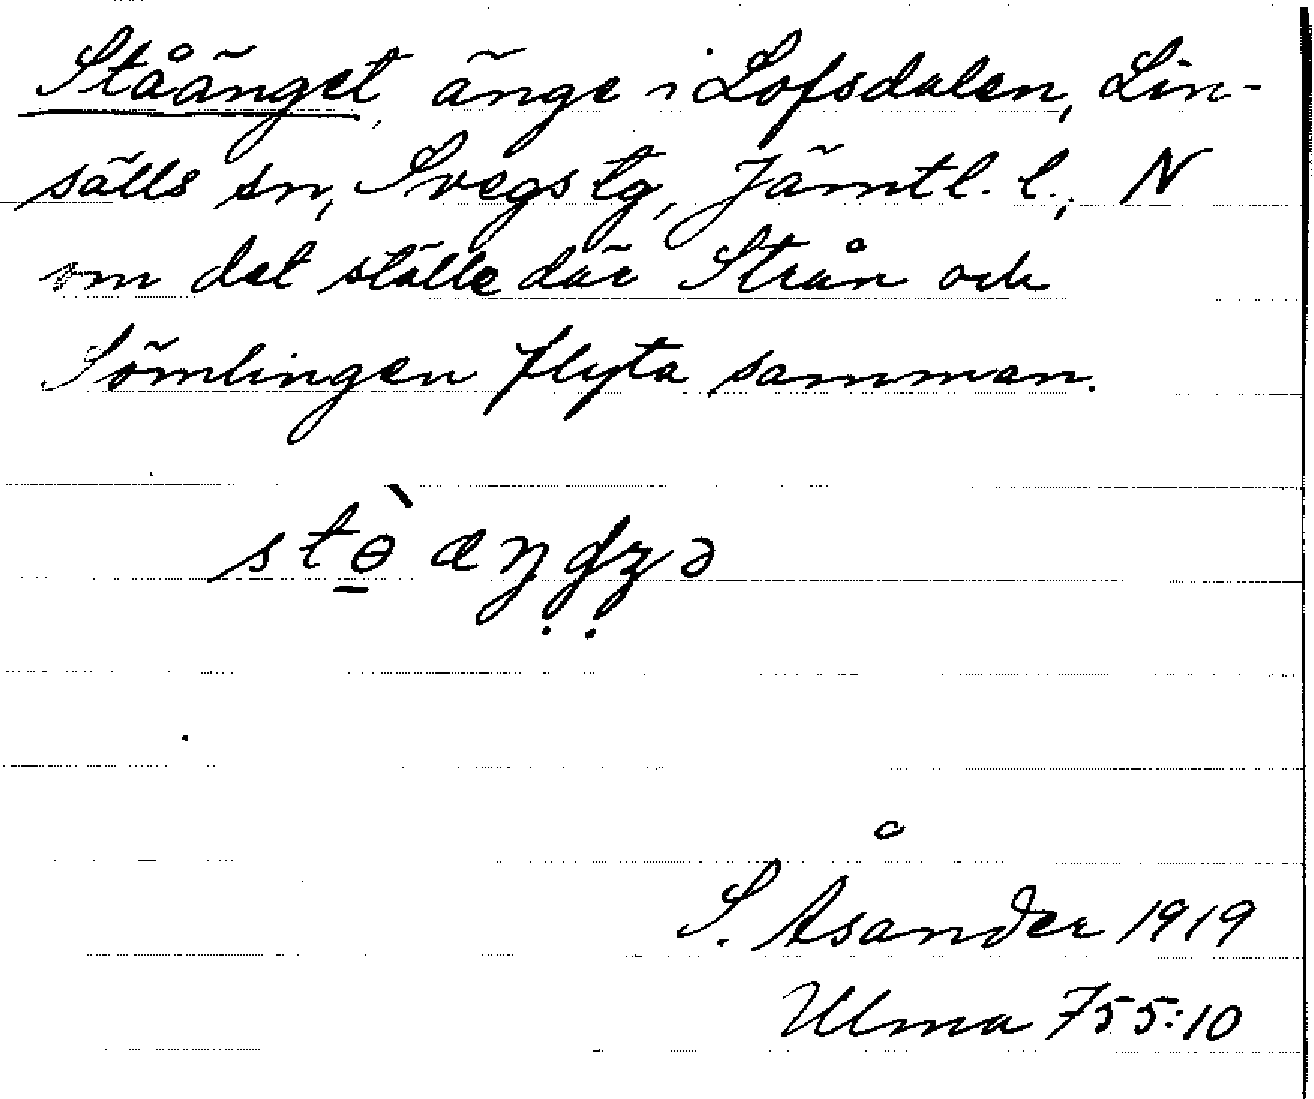 Ståänget, änge i Lofsdalen, Lin-
sälls sn, Svegs tg, Jämtl. l., N
om det ställe där Strån och
Sömlingen flyta samman.
S. Åsander 1919
Ulma 755:10